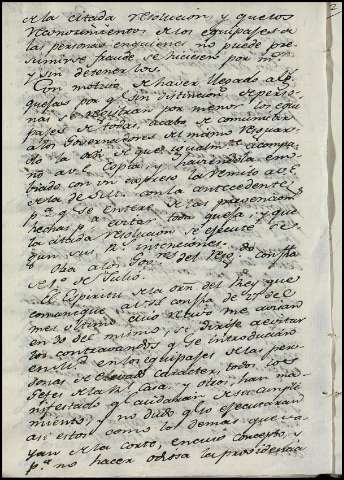 de la citada resolucion, y que los
reconocimientos de los equipajes de
las personas en quienes no puede pre-
sumirse fraude se hiciesen por m.or
y sin detenerlos.
Con motivo de haver llegado al
quejas por q.e sin distincion de perso-
nas se registran por menor los equi-
pajes de todas, acabo de comunicar
a los Governadores del mismo resguar-
do la orn. de que igualm.te acompa-
ño a V.E. copia; y haviendola em-
biado con un expreso la remito a V.E.
con la antecedente
p.a q.e se entere de las prevenciones
hechas p.a evitar toda queja, y que
la citada resolucion se execute se-
gun sus R.s intenciones.
Otra a los Gov.res del Resg.do con fha
de 1.o de Julio.
El Espiritu de la orn. del Rey que
comuniqué a V.S. con fha de 27 del
mes ultimo
en do del mismo, se dirije a evitar
los contravandos q.e se introducian
en Md. en los equipajes de las per-
sonas de elevado caracter; todos los
Gefes de la R.l Casa, y otros, han ma-
nifestado q.e cuidarán de su cumpli-
miento, y no dudo q.e lo ejecutarán
asi estos como los demas que va-
yan de la Corte, en cuio concepto, y
p.a no hacer odiosa la providencia
2